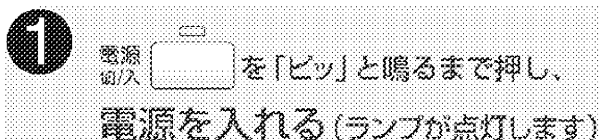 ❶ 電源 切/入 を「ピッ」と鳴るまで押し、
電源を入れる(ランプが点灯します)